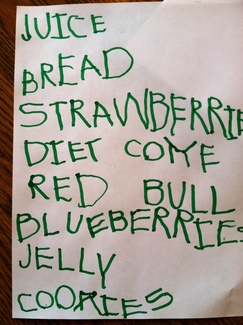 JUICE
BREAD
STRAWBERRIE
DIET COYE
RED BULL
BLUEBERRIES
JELLY
COOKIES